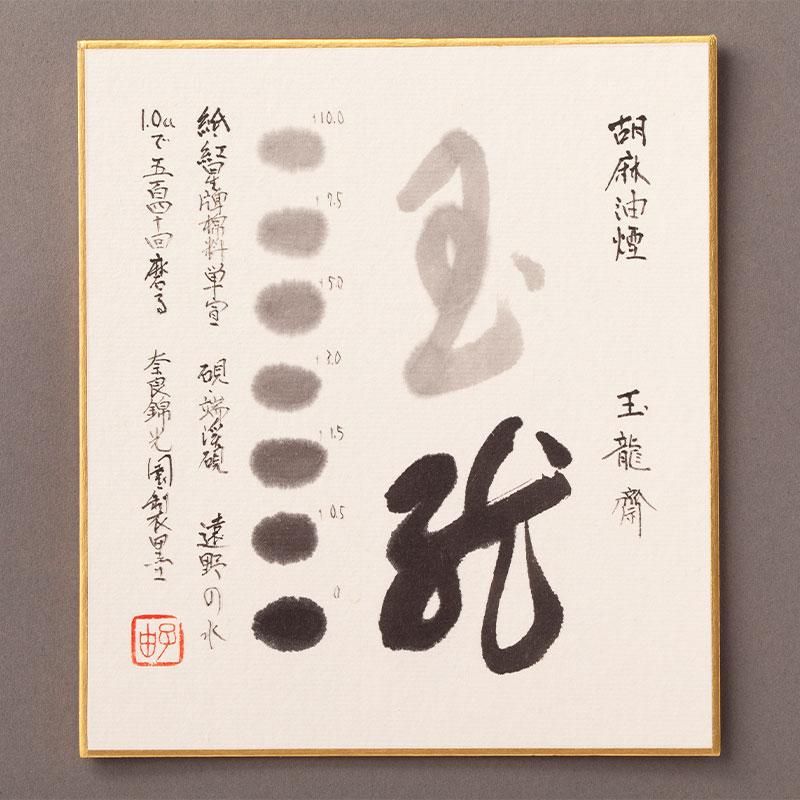 胡麻油煙 玉龍齋
玉龍
+10.0
+7.5
+5.0
+3.0
+1.5
+0.5
0
紙 紅星牌棉料単宣 硯・端渓硯 遠野の水
1.0ccで五百四十回磨る 奈良錦光園製墨